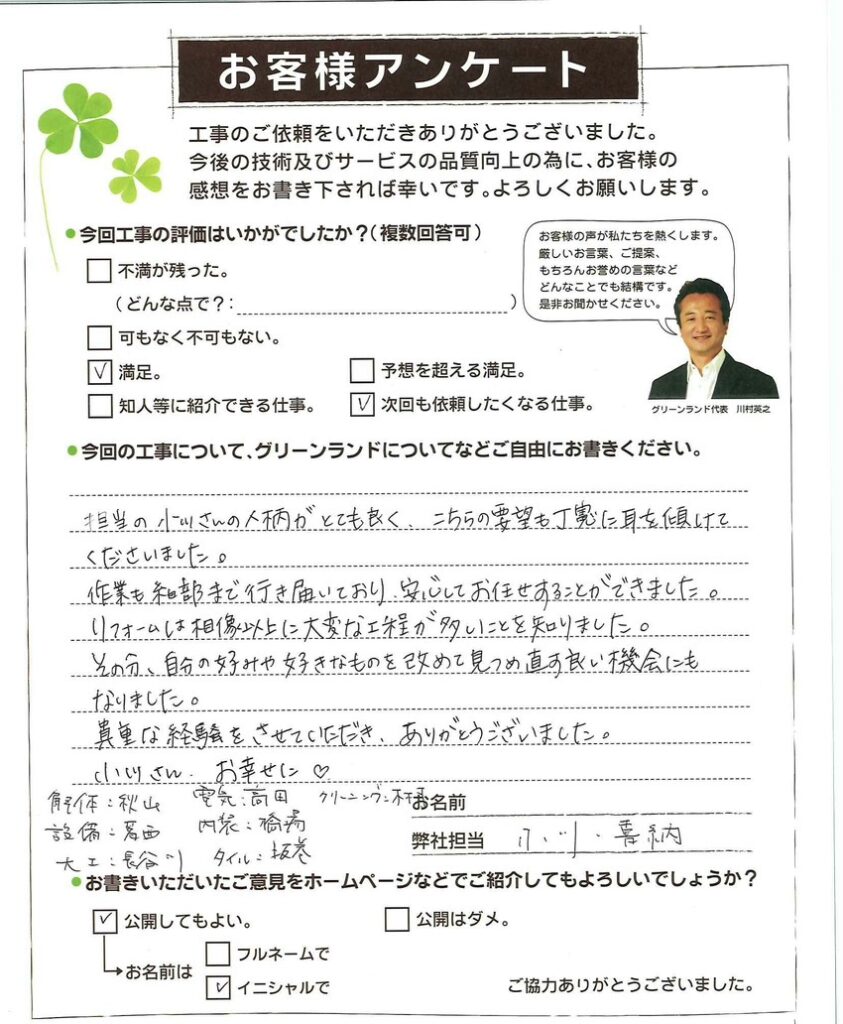 お客様アンケート
工事のご依頼をいただきありがとうございました。
今後の技術及びサービスの品質向上の為に、お客様の
感想をお書き下されば幸いです。よろしくお願いします。
●今回工事の評価はいかがでしたか？（複数回答可）
お客様の声が私たちを熱くします。
厳しいお言葉、ご提案、
もちろんお誉めの言葉など
どんなことでも結構です。
是非お聞かせください。
不満が残った。
（どんな点で？：　）
可もなく不可もない。
満足。
予想を超える満足。
知人等に紹介できる仕事。
次回も依頼したくなる仕事。
グリーンランド代表　川村英之
●今回の工事について、グリーンランドについてなどご自由にお書きください。
担当の小川さんの人柄がとても良く、こちらの要望も丁寧に耳を傾けて
くださいました。
作業も細部まで行き届いており、安心してお任せすることができました。
リフォームは想像以上に大変な工程が多いことを知りました。
その分、自分の好みや好きなものを改めて見つめ直す良い機会にも
なりました。
貴重な経験をさせていただき、ありがとうございました。
小川さん、お幸せに♡
解体：秋山　電気：高田　クリーニング：
お名前
設備：葛西　内装：橋場
弊社担当　小川・喜納
大工：長谷川　タイル：坂巻
●お書きいただいたご意見をホームページなどでご紹介してもよろしいでしょうか？
公開してもよい。
公開はダメ。
お名前は
フルネームで
イニシャルで
ご協力ありがとうございました。